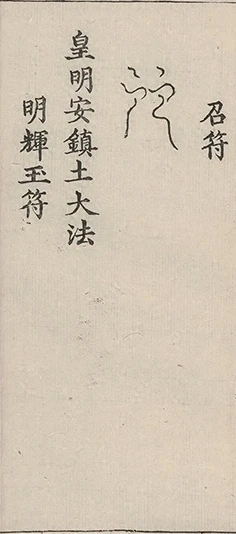 召符
皇明安鎮土大法
明輝玉符